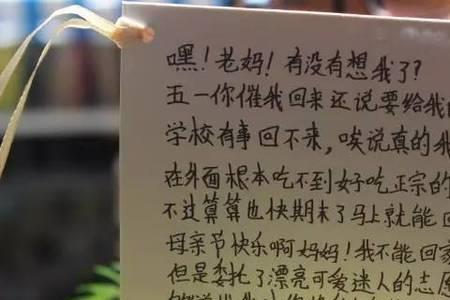 嘿！老妈！有没有想我了？
五一你催我回来还说要给我
学校有事回不来，唉说真的我
在外面根本吃不到好吃正宗的
不过算算也快期末了马上就能回
母亲节快乐啊妈妈！我不能回家
但是委托了漂亮可爱迷人的志愿